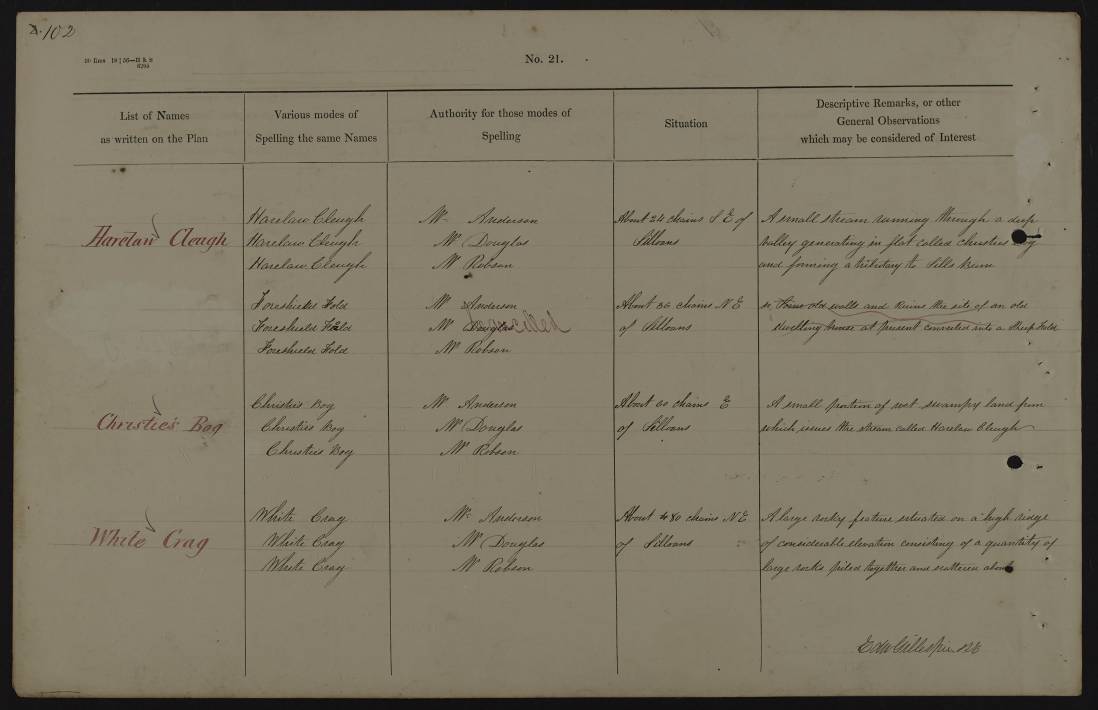 102
No. 21.
List of Names
as written on the Plan
Various modes of
Spelling the same Names
Authority for those modes of
Spelling
Situation
Descriptive Remarks, or other
General Observations
which may be considered of Interest
Harelaw Cleugh
Harelaw Cleugh
Harelaw Cleugh
Harelaw Cleugh
Mr Anderson
Mr Douglas
Mr Robson
About 24 chains S E of
Silloans
A small stream running through a deep
valley generating in flat called Christies Bog
and forming a tributary to Sills Burn
Foreshield Fold
Foreshield Fold
Foreshield Fold
Mr Anderson
Mr Douglas
Mr Robson
Cancelled
About 36 chains N E
of Silloans
Some old walls and Ruins the site of an old
dwelling house at present converted into a Sheep Fold
Christie's Bog
Christies Bog
Christies Bog
Christies Bog
Mr Anderson
Mr Douglas
Mr Robson
About 60 chains E
of Silloans
A small portion of wet swampy land from
which issues the stream called Harelaw Cleugh
White Crag
White Crag
White Crag
White Crag
Mr Anderson
Mr Douglas
Mr Robson
About 80 chains N E
of Silloans
A large rocky feature situated on a high ridge
of considerable elevation consisting of a quantity of
large rocks piled together and scattered about
Edw Gillespie RE